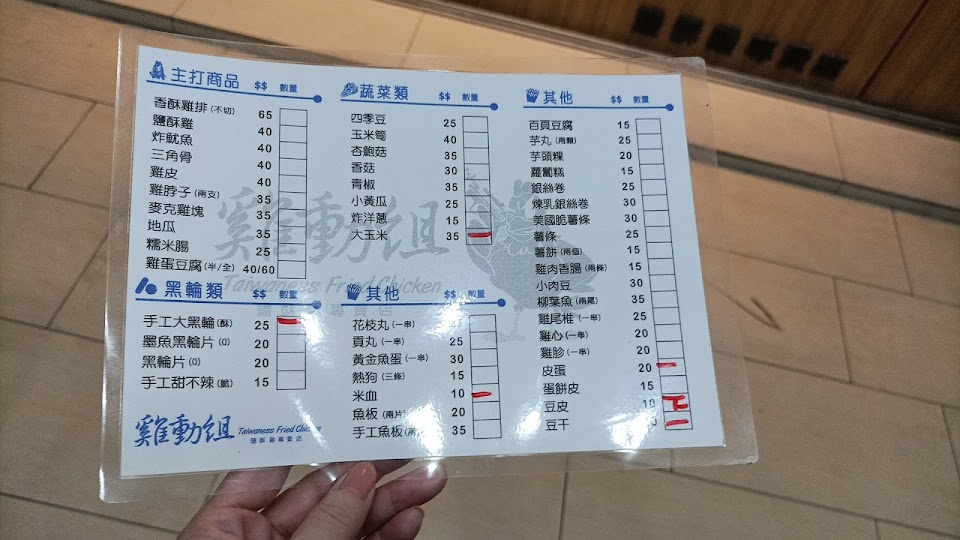 主打商品 $$ 數量
香酥雞排(不切) 65
鹽酥雞 40
炸魷魚 40
三角骨 40
雞皮 40
雞脖子(兩支) 35
麥克雞塊 35
地瓜 35
糯米腸 25
雞蛋豆腐(半/全) 40/60
黑輪類 $$ 數量
手工大黑輪(酥) 25
墨魚黑輪片(Q) 20
黑輪片(Q) 20
手工甜不辣(脆) 15
雞動組 Taiwaness Fried Chicken
鹽酥雞專賣店
蔬菜類 $$ 數量
四季豆 25
玉米筍 40
杏鮑菇 35
香菇 30
青椒 35
小黃瓜 25
炸洋蔥 15
大玉米 35
其他 $$ 數量
花枝丸(一串)
貢丸(一串)
黃金魚蛋(一串) 30
熱狗(三條) 15
米血 10
魚板(兩片) 20
手工魚板 35
其他 $$ 數量
百頁豆腐 15
芋丸(兩顆) 25
芋頭粿 20
蘿蔔糕 15
銀絲卷 25
煉乳銀絲卷 30
美國脆薯條 30
薯條 25
薯餅(兩個) 15
雞肉香腸(兩條) 15
小肉豆 30
柳葉魚(兩尾) 35
雞尾椎(一串) 25
雞心(一串) 20
雞胗(一串) 20
皮蛋 20
蛋餅皮 15
豆皮 10
豆干
雞動組
Taiwaness Fried Chicken
鹽酥雞專賣店